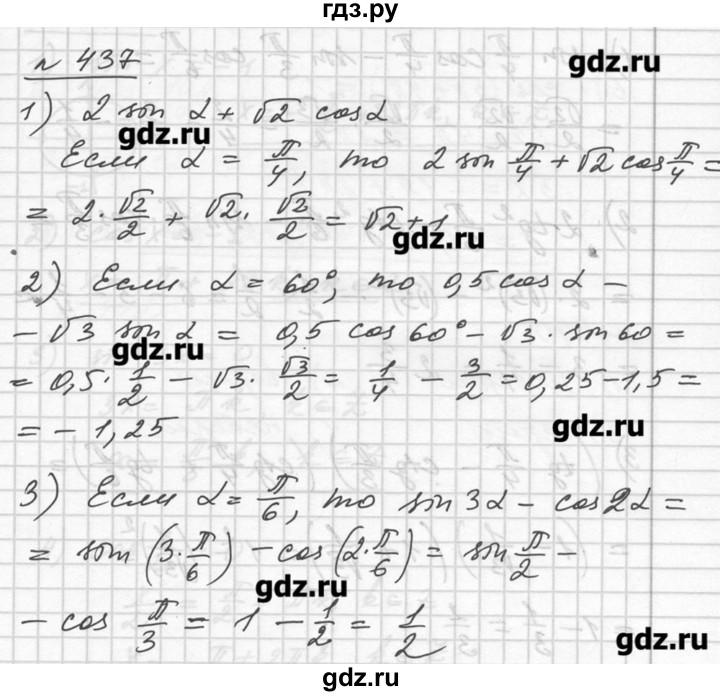 гдз.ру
n 437
gdz.ru
1) 2 sin α + √2 cos α
gdz.ru
Если α = π/4, то 2 sin π/4 + √2 cos π/4 =
= 2 · √2/2 + √2 · √2/2 = √2 + 1
gdz.ru
2) Если α = 60°, то 0,5 cos α –
– √3 sin α = 0,5 cos 60° – √3 · sin 60 =
gdz.ru
= 0,5 · 1/2 – √3 · √3/2 = 1/4 – 3/2 = 0,25 – 1,5 =
= – 1,25
gdz.ru
3) Если α = π/6, то sin 3α – cos 2α =
= sin (3 · π/6) – cos (2 · π/6) = sin π/2 –
gdz.ru
– cos π/3 = 1 – 1/2 = 1/2
gdz.ru
gdz.ru